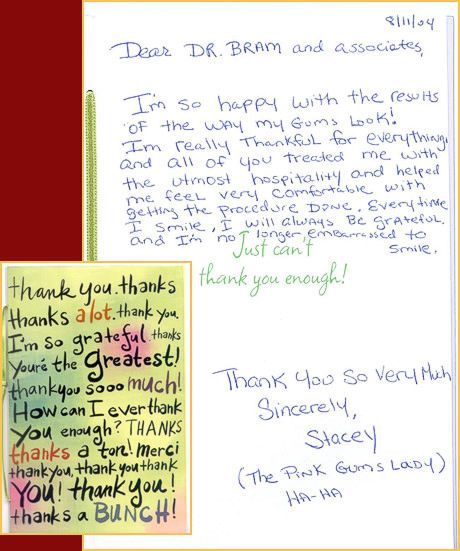 8/11/04
Dear DR. BRAM and associates,
I'm so happy with the results
OF the WAY my GUMS LOOK!
I'm really Thankful for everything,
and all of you treated me with
the utmost hospitality and helped
me feel very comfortable with
getting the procedure DONE. Everytime
I smile, I will always BE grateful.
and I'm no longer embarrassed to
smile.
Just can't
thank you enough!
Thank You So Very Much
Sincerely,
Stacey
(The Pink Gums Lady)
HA-HA
thank you. thanks
thanks a lot. thank you.
I'm so grateful. thanks
you're the greatest!
thankyou sooo much!
How can I ever thank
You enough? THANKS
thanks a ton! merci
thankyou, thank you thank
YOU! thank you!
thanks a BUNCH!